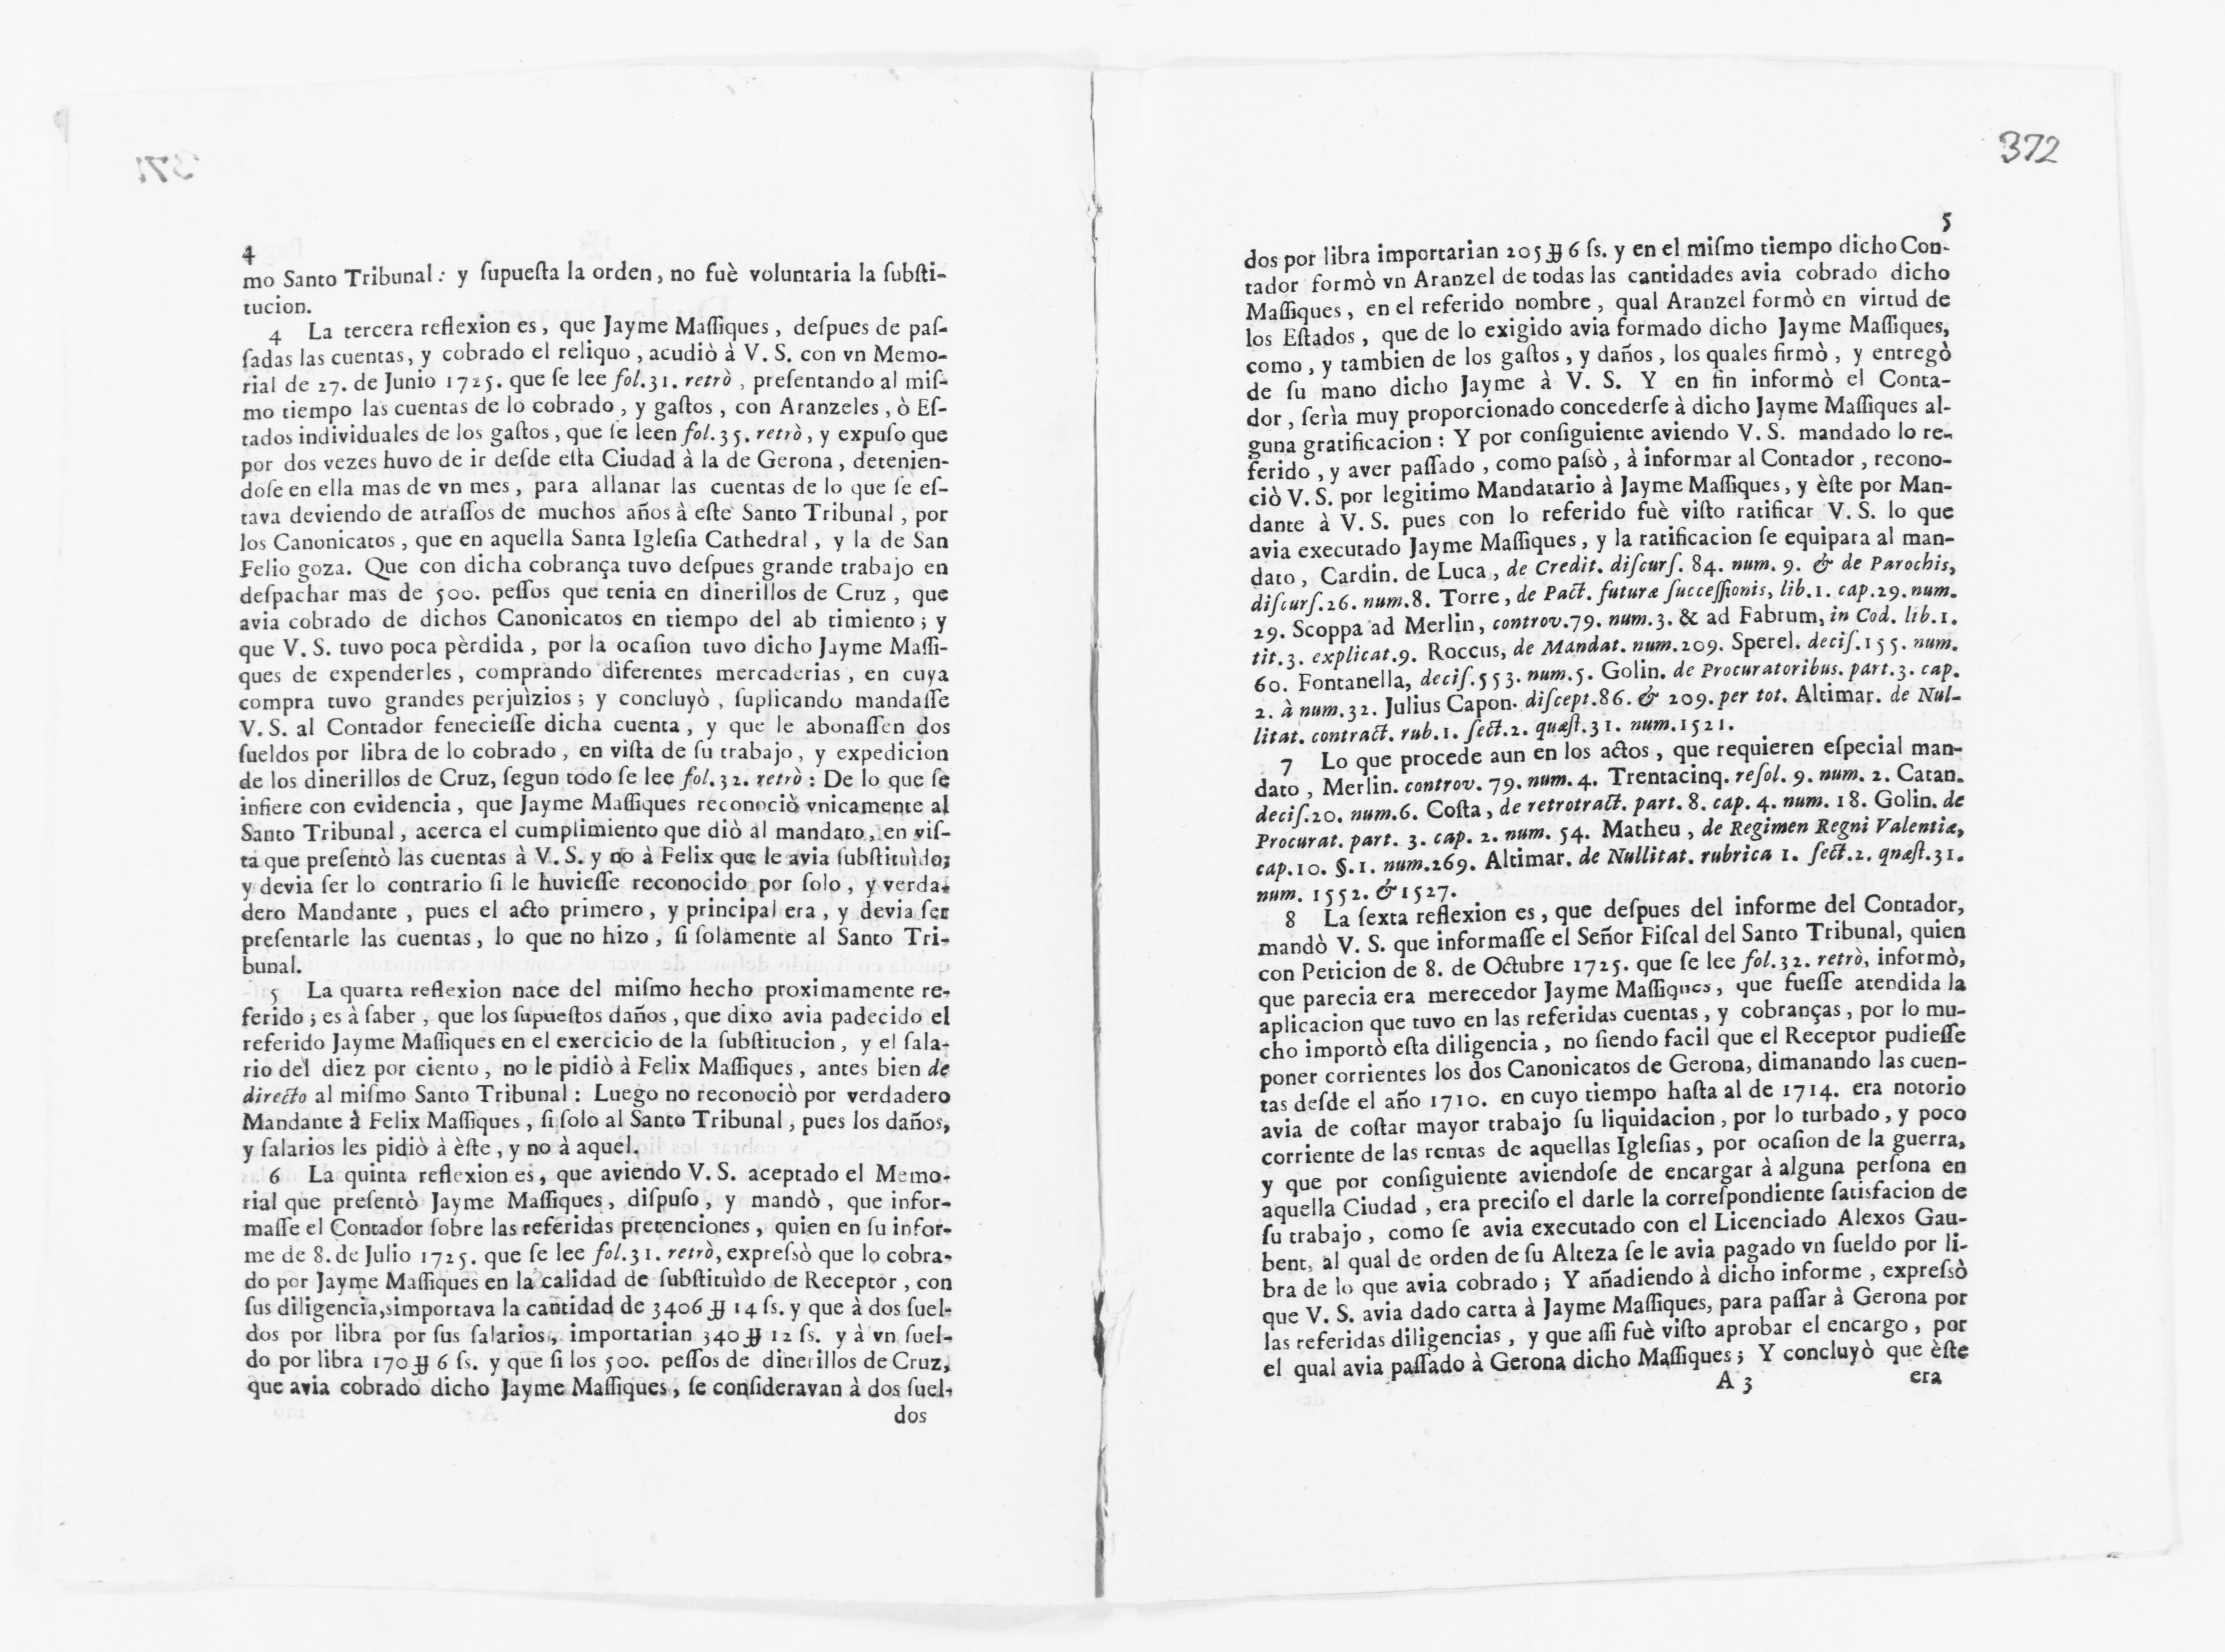 4
mo Santo Tribunal: y ſupueſta la orden, no fuè voluntaria la ſubſti-
tucion.
4 La tercera reflexion es, que Jayme Maſſiques, deſpues de paſ-
ſadas las cuentas, y cobrado el reliquo, acudiò à V. S. con vn Memo-
rial de 27. de Junio 1725. que ſe lee fol.31. retrò, preſentando al miſ-
mo tiempo las cuentas de lo cobrado, y gaſtos, con Aranzeles, ò Eſ-
tados individuales de los gaſtos, que ſe leen fol.35. retrò, y expuſo que
por dos vezes huvo de ir deſde eſta Ciudad à la de Gerona, detenien-
doſe en ella mas de vn mes, para allanar las cuentas de lo que ſe eſ-
tava deviendo de atraſſos de muchos años à eſte Santo Tribunal, por
los Canonicatos, que en aquella Santa Igleſia Cathedral, y la de San
Felio goza. Que con dicha cobrança tuvo deſpues grande trabajo en
deſpachar mas de 500. peſſos que tenia en dinerillos de Cruz, que
avia cobrado de dichos Canonicatos en tiempo del ab timiento; y
que V. S. tuvo poca pèrdida, por la ocaſion tuvo dicho Jayme Maſſi-
ques de expenderles, comprando diferentes mercaderias, en cuya
compra tuvo grandes perjuìzios; y concluyò, ſuplicando mandaſſe
V. S. al Contador fenecieſſe dicha cuenta, y que le abonaſſen dos
ſueldos por libra de lo cobrado, en viſta de ſu trabajo, y expedicion
de los dinerillos de Cruz, ſegun todo ſe lee fol.32. retrò: De lo que ſe
infiere con evidencia, que Jayme Maſſiques reconociò vnicamente al
Santo Tribunal, acerca el cumplimiento que diò al mandato, en viſ-
ta que preſentò las cuentas à V. S. y no à Felix que le avia ſubſtituìdo;
y devia ſer lo contrario ſi le huvieſſe reconocido por ſolo, y verda-
dero Mandante, pues el acto primero, y principal era, y devia ſer
preſentarle las cuentas, lo que no hizo, ſi ſolamente al Santo Tri-
bunal.
5 La quarta reflexion nace del miſmo hecho proximamente re-
ferido; es à ſaber, que los ſupueſtos daños, que dixo avia padecido el
referido Jayme Maſſiques en el exercicio de la ſubſtitucion, y el ſala-
rio del diez por ciento, no le pidiò à Felix Maſſiques, antes bien de
directo al miſmo Santo Tribunal: Luego no reconociò por verdadero
Mandante à Felix Maſſiques, ſi ſolo al Santo Tribunal, pues los daños,
y ſalarios les pidiò à èſte, y no à aquel.
6 La quinta reflexion es, que aviendo V. S. aceptado el Memo-
rial que preſentò Jayme Maſſiques, diſpuſo, y mandò, que infor-
maſſe el Contador ſobre las referidas pretenciones, quien en ſu infor-
me de 8. de Julio 1725. que ſe lee fol.31. retrò, expreſsò que lo cobra-
do por Jayme Maſſiques en la calidad de ſubſtituìdo de Receptor, con
ſus diligencia,simportava la cantidad de 3406 ₶ 14 ſs. y que à dos ſuel-
dos por libra por ſus ſalarios, importarian 340 ₶ 12 ſs. y à vn ſuel-
do por libra 170 ₶ 6 ſs. y que ſi los 500. peſſos de dinerillos de Cruz,
que avia cobrado dicho Jayme Maſſiques, ſe conſideravan à dos ſuel-
dos
372
5
dos por libra importarian 205 ₶ 6 ſs. y en el miſmo tiempo dicho Con-
tador formò vn Aranzel de todas las cantidades avia cobrado dicho
Maſſiques, en el referido nombre, qual Aranzel formò en virtud de
los Eſtados, que de lo exigido avia formado dicho Jayme Maſſiques,
como, y tambien de los gaſtos, y daños, los quales firmò, y entregò
de ſu mano dicho Jayme à V. S. Y en fin informò el Conta-
dor, ſerìa muy proporcionado concederſe à dicho Jayme Maſſiques al-
guna gratificacion: Y por conſiguiente aviendo V. S. mandado lo re-
ferido, y aver paſſado, como paſsò, à informar al Contador, recono-
ciò V. S. por legitimo Mandatario à Jayme Maſſiques, y èſte por Man-
dante à V. S. pues con lo referido fuè viſto ratificar V. S. lo que
avia executado Jayme Maſſiques, y la ratificacion ſe equipara al man-
dato, Cardin. de Luca, de Credit. diſcurſ. 84. num. 9. & de Parochis,
diſcurſ.26. num.8. Torre, de Pact. futuræ ſucceſſionis, lib.1. cap.29. num.
29. Scoppa ad Merlin, controv.79. num.3. & ad Fabrum, in Cod. lib.1.
tit.3. explicat.9. Roccus, de Mandat. num.209. Sperel. deciſ.155. num.
60. Fontanella, deciſ.553. num.5. Golin. de Procuratoribus. part.3. cap.
2. à num.32. Julius Capon. diſcept.86. & 209. per tot. Altimar. de Nul-
litat. contract. rub.1. ſect.2. quæſt.31. num.1521.
7 Lo que procede aun en los actos, que requieren eſpecial man-
dato, Merlin. controv. 79. num. 4. Trentacinq. reſol. 9. num. 2. Catan.
deciſ.20. num.6. Coſta, de retrotract. part. 8. cap. 4. num. 18. Golin. de
Procurat. part. 3. cap. 2. num. 54. Matheu, de Regimen Regni Valentiæ,
cap.10. §.1. num.269. Altimar. de Nullitat. rubrica 1. ſect.2. quæſt.31.
num. 1552. & 1527.
8 La ſexta reflexion es, que deſpues del informe del Contador,
mandò V. S. que informaſſe el Señor Fiſcal del Santo Tribunal, quien
con Peticion de 8. de Octubre 1725. que ſe lee fol.32. retrò, informò,
que parecia era merecedor Jayme Maſſiques, que fueſſe atendida la
aplicacion que tuvo en las referidas cuentas, y cobranças, por lo mu-
cho importò eſta diligencia, no ſiendo facil que el Receptor pudieſſe
poner corrientes los dos Canonicatos de Gerona, dimanando las cuen-
tas deſde el año 1710. en cuyo tiempo haſta al de 1714. era notorio
avia de coſtar mayor trabajo ſu liquidacion, por lo turbado, y poco
corriente de las rentas de aquellas Igleſias, por ocaſion de la guerra,
y que por conſiguiente aviendoſe de encargar à alguna perſona en
aquella Ciudad, era preciſo el darle la correſpondiente ſatisfacion de
ſu trabajo, como ſe avia executado con el Licenciado Alexos Gau-
bent, al qual de orden de ſu Alteza ſe le avia pagado vn ſueldo por li-
bra de lo que avia cobrado; Y añadiendo à dicho informe, expreſsò
que V. S. avia dado carta à Jayme Maſſiques, para paſſar à Gerona por
las referidas diligencias, y que aſſi fuè viſto aprobar el encargo, por
el qual avia paſſado à Gerona dicho Maſſiques; Y concluyò que èſte
A 3 era